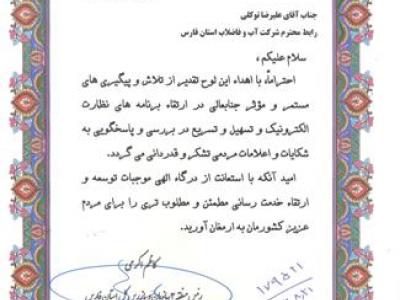 جناب آقای علیرضا توکلی
رابط محترم شرکت آب و فاضلاب استان فارس
سلام علیکم،
احتراماً، با اهداء این لوح تقدیر از تلاش و پیگیری های
مستمر و مؤثر جنابعالی در ارتقاء برنامه های نظارت
الکترونیک و تسهیل و تسریع در بررسی و پاسخگویی به
شکایات و اعلامات مردمی تشکر و قدردانی می گردد.
امید آنکه با استعانت از درگاه الهی موجبات توسعه و
ارتقاء خدمت رسانی مطمئن و مطلوب تری را برای مردم
عزیز کشورمان به ارمغان آورید.
کاظم اکرمی
رئیس منطقه ۳ استان فارس